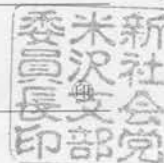 新社会党
米沢支部
委員長印
㊞